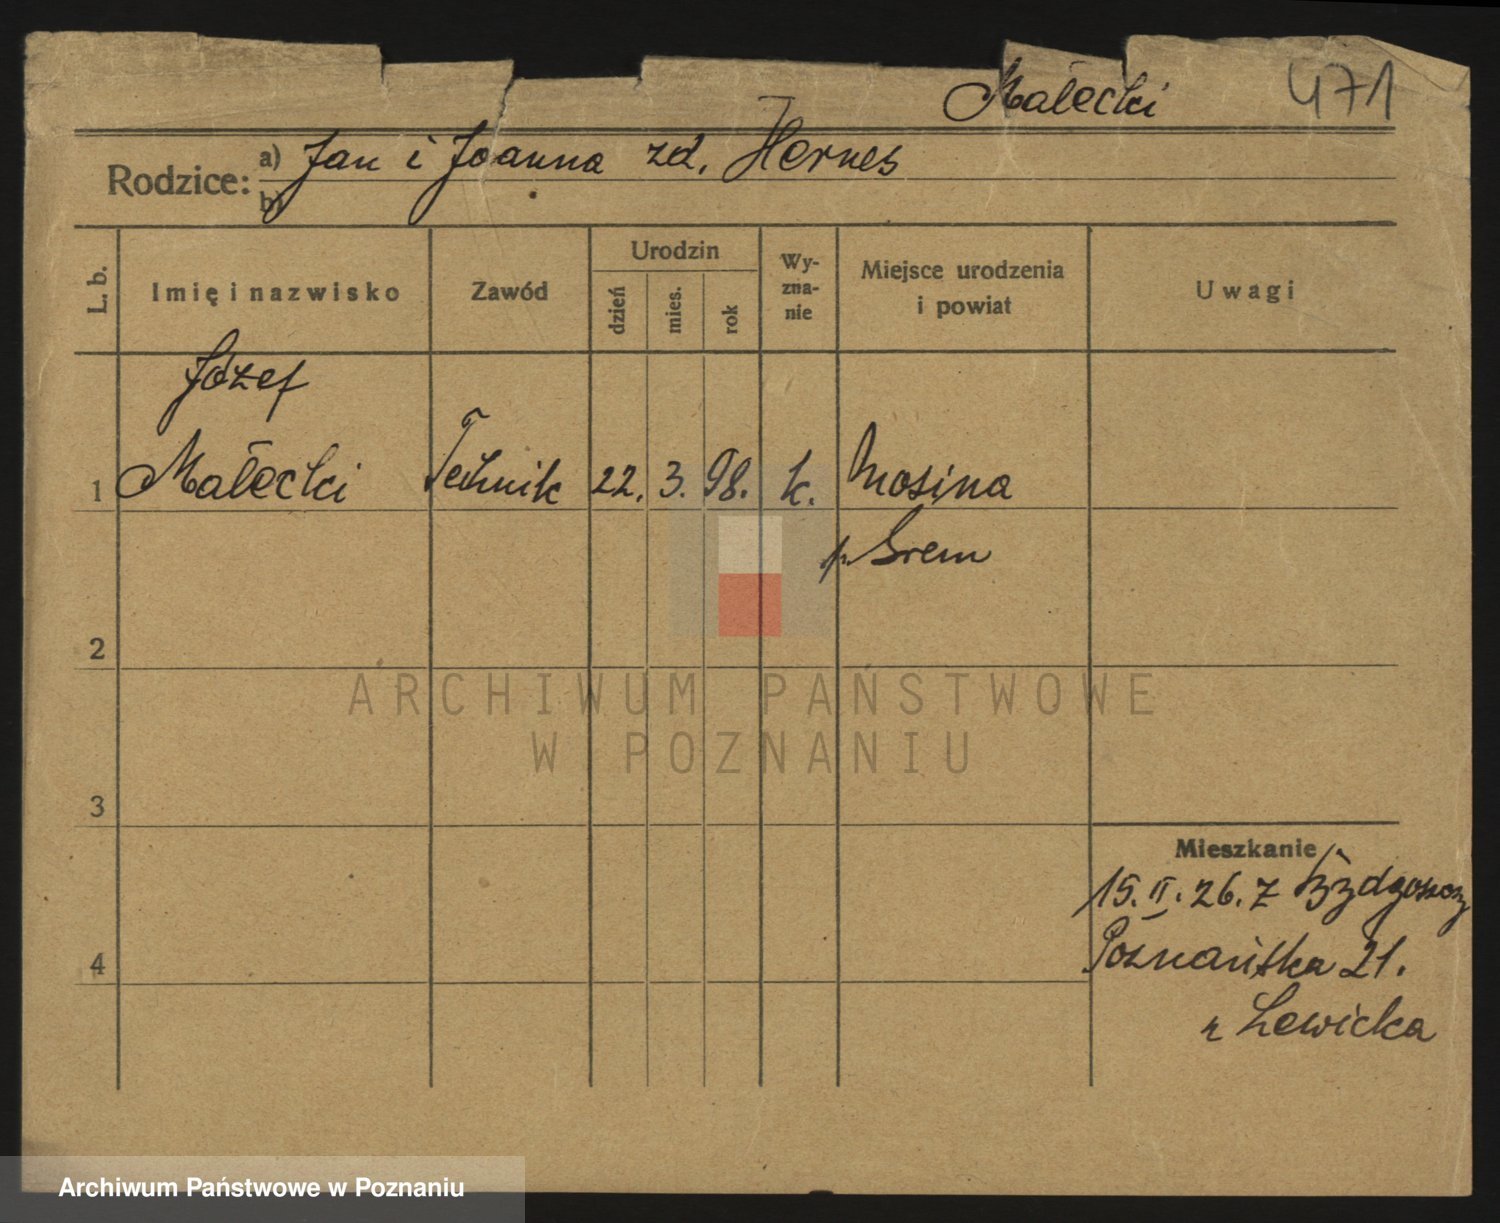 Małecki 471
Rodzice: a) Jan i Joanna zd. Hernes
b)
L. b.
Imię i nazwisko
Zawód
Urodzin
dzień
mies.
rok
Wy-
zna-
nie
Miejsce urodzenia
i powiat
Uwagi
Józef
1 Małecki Technik 22. 3. 98. k. Mosina
p. Śrem
2
3
4
Mieszkanie
15. II. 26. z Bydgoszczy
Poznańska 21.
Lewicka
ARCHIWUM PAŃSTWOWE
W POZNANIU
Archiwum Państwowe w Poznaniu